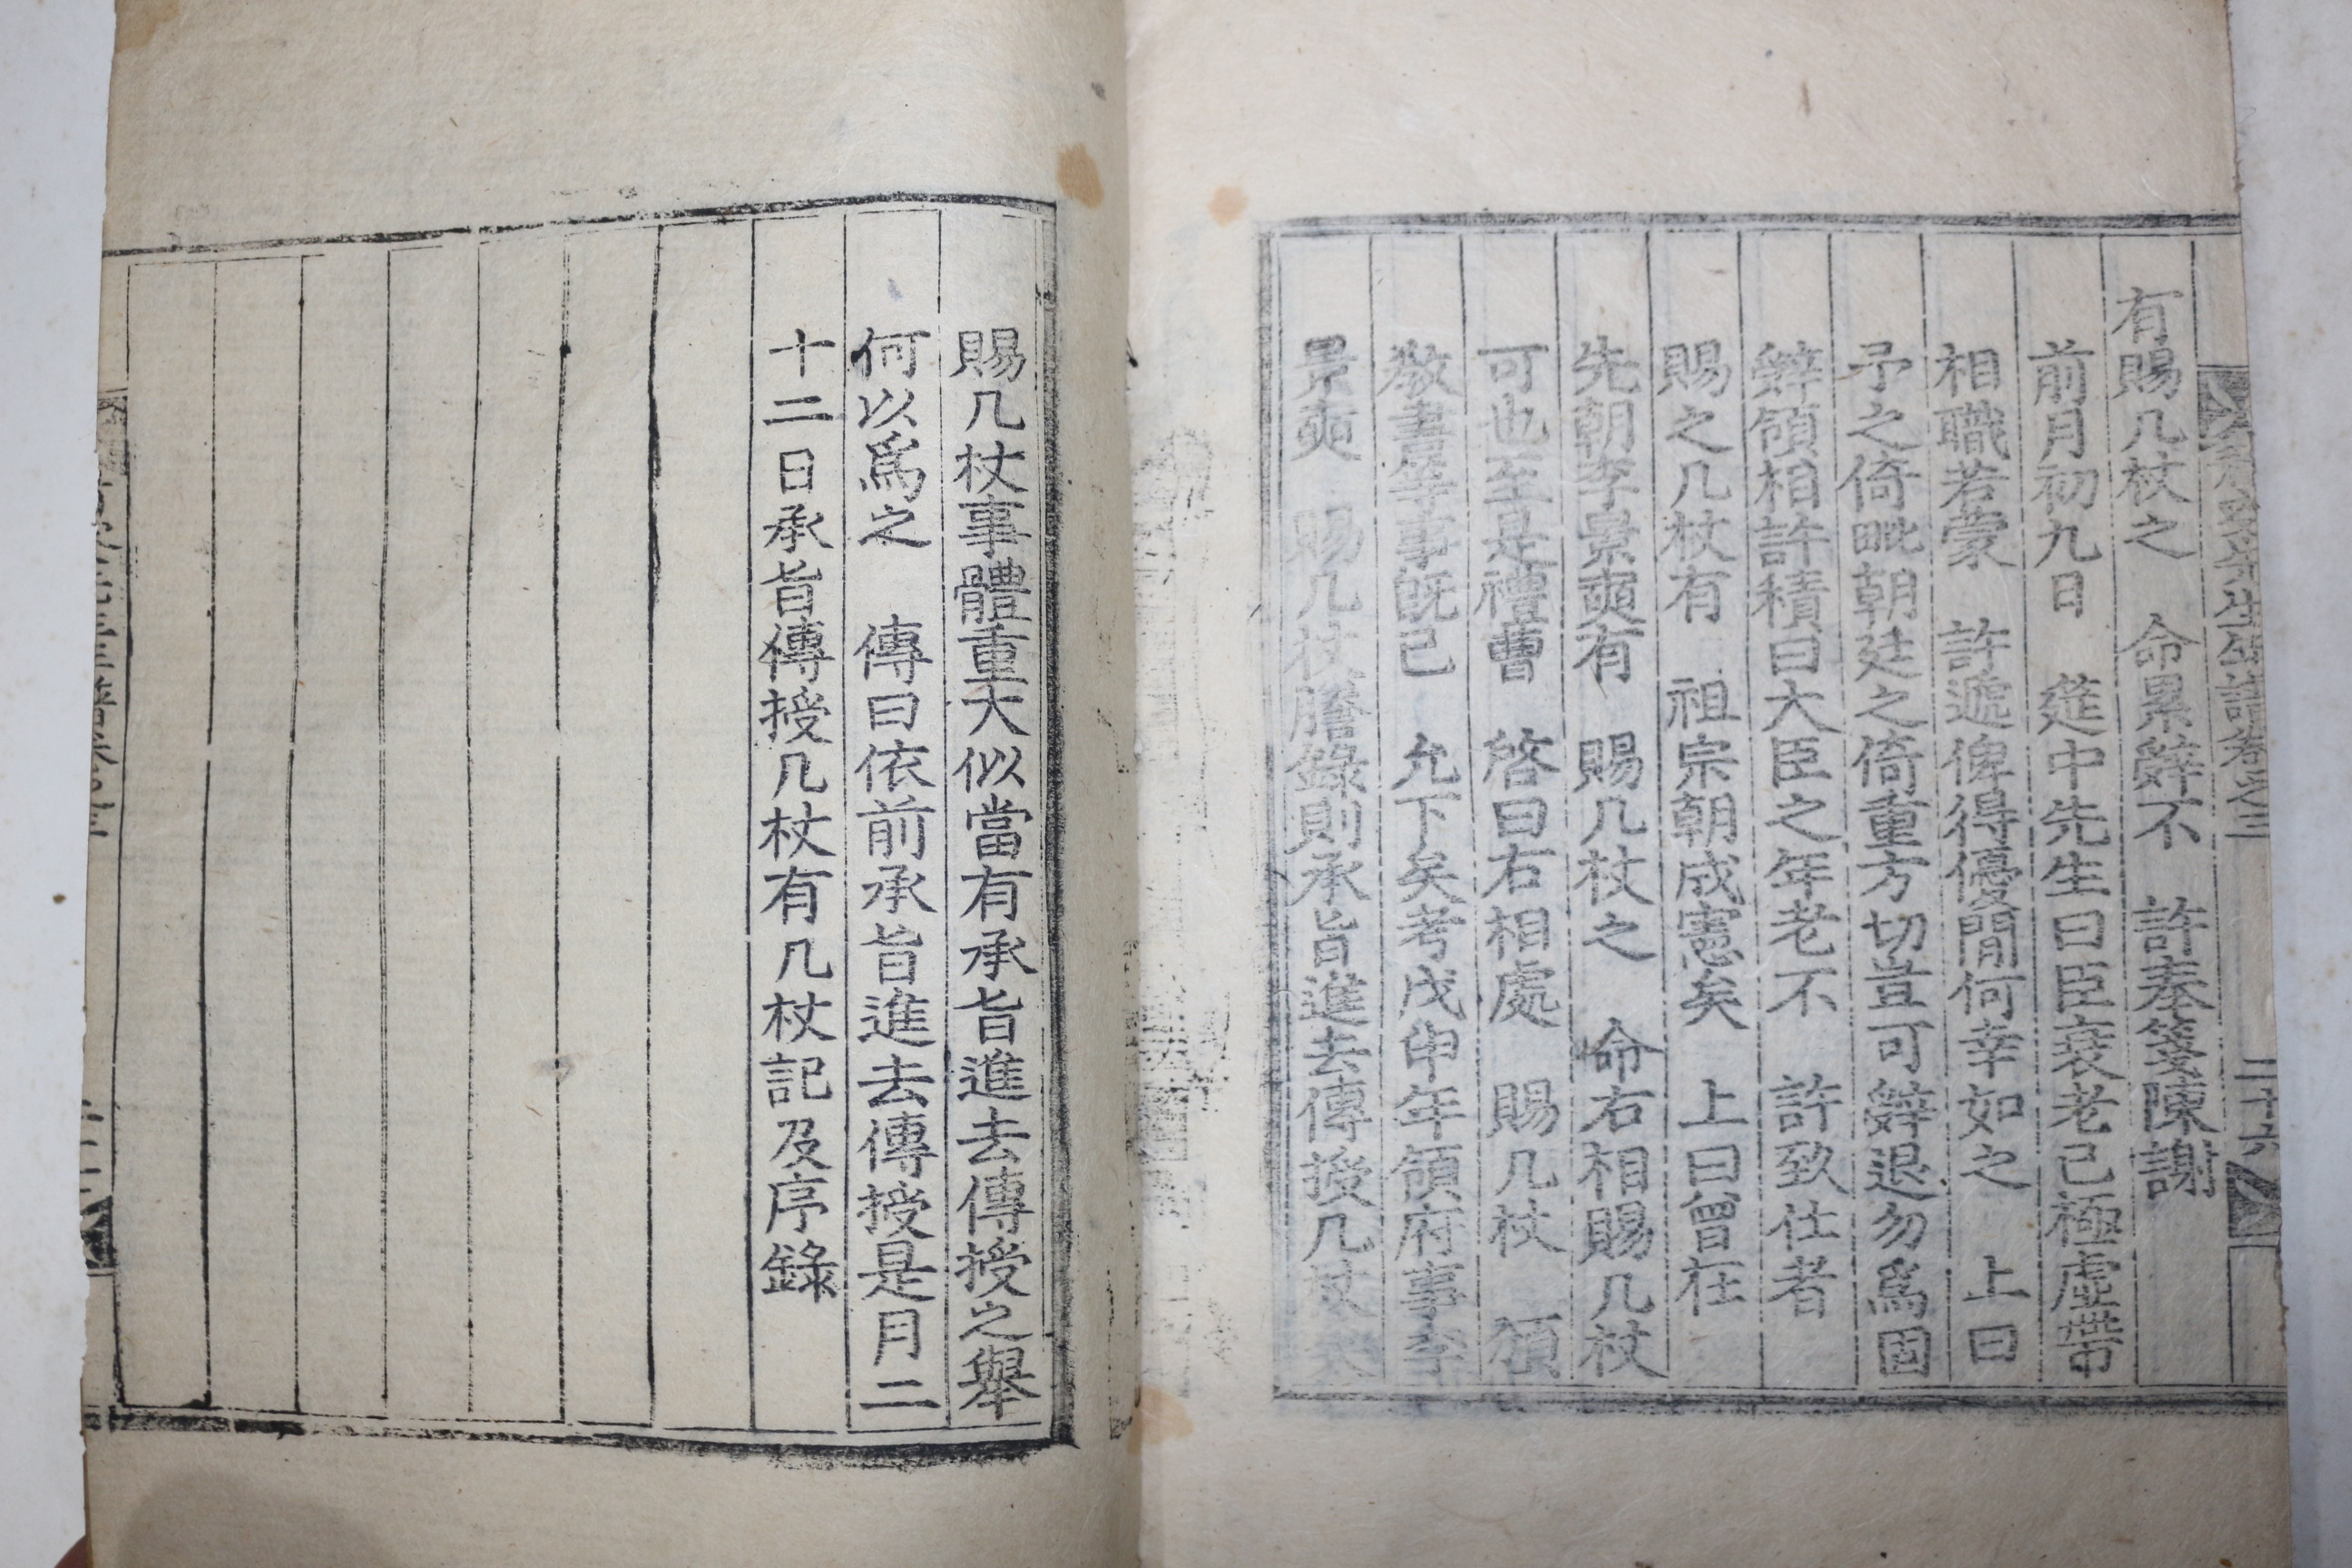 有賜几杖之 命累辭不 許奏箋陳謝
前月初九日 筵中先生曰臣衰老已極虛帶
相職若蒙 許遞俾得優閒何幸如之 上曰
予之倚毗朝廷之倚重方切豈可辭退勿爲固
辭領相許積曰大臣之年老不 許致仕者
賜之几杖有 祖宗朝成憲矣 上曰曾在
先朝李景奭有 賜几杖之 命右相賜几杖
可也至是禮曹 啓曰右相處 賜几杖 頒
敎書等事旣已 允下矣考戊申年領府事李
景奭 賜几杖謄錄則承旨進去傳授几杖
賜几杖事體重大似當有承旨進去傳授之擧
何以爲之 傳曰依前承旨進去傳授是月二
十二日承旨傳授几杖有几杖記及序錄
先生年譜卷之三
二十六